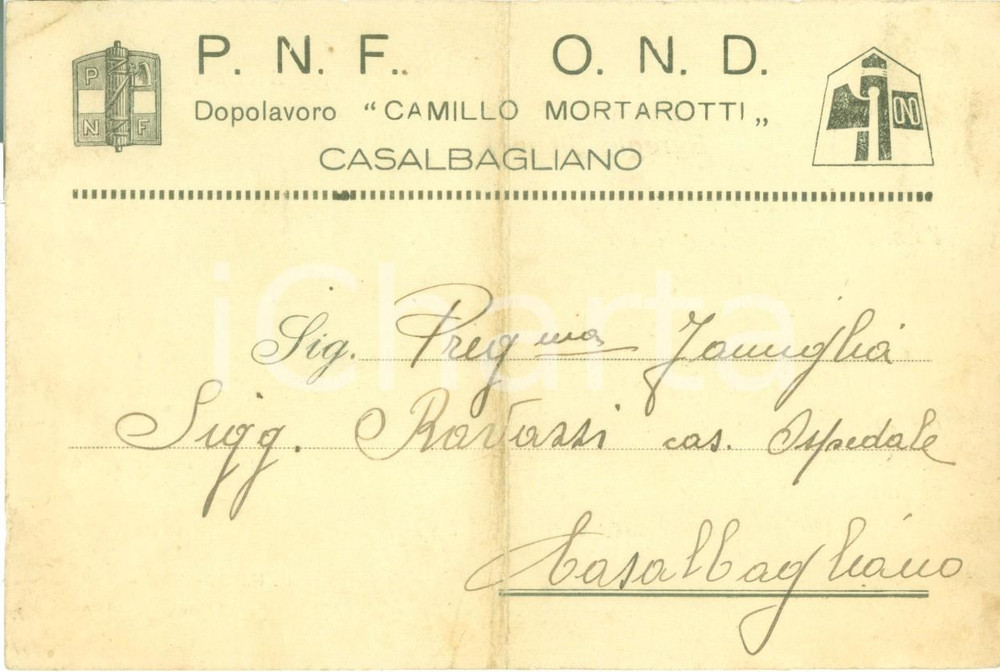 P. N. F. O. N. D.
Dopolavoro "CAMILLO MORTAROTTI„
CASALBAGLIANO
P N F
OND
iCharta
Sig. Preg mia Famiglia
Sigg. Ravassi cas. Ospedale
Casalbagliano